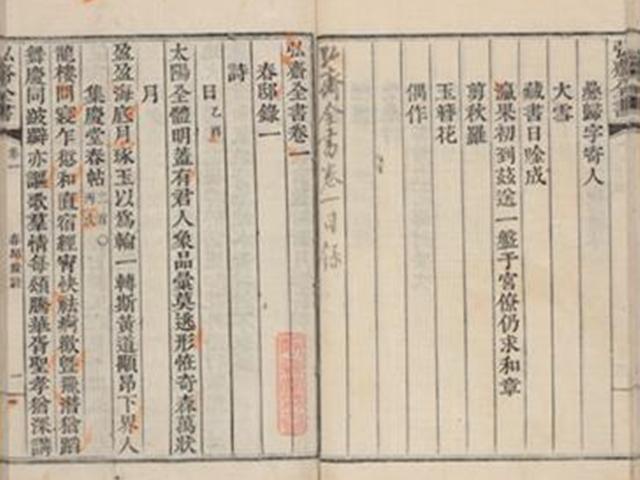 弘齋全書
疊歸字寄人
大雪
藏書日唫成
瀛果初到茲送一盤于宮僚仍求和章
剪秋羅
玉簪花
偶作
弘齋全書卷一目錄
弘齋全書卷一
春邸錄一
詩
日 乙酉
太陽全體明蓋有君人象品彙莫逃形恠奇森萬狀
月
盈盈海底月琢玉以爲輪一轉斯黃道顯昂下界人
集慶堂春帖 二首○
龍樓問寢乍怡和直宿經宵快祛痾歡曁飛潛猶蹈
舞慶同亦謳歌羣情每頌騰華胥聖孝猶深講
弘齋全書
卷一
春邸錄詩
一